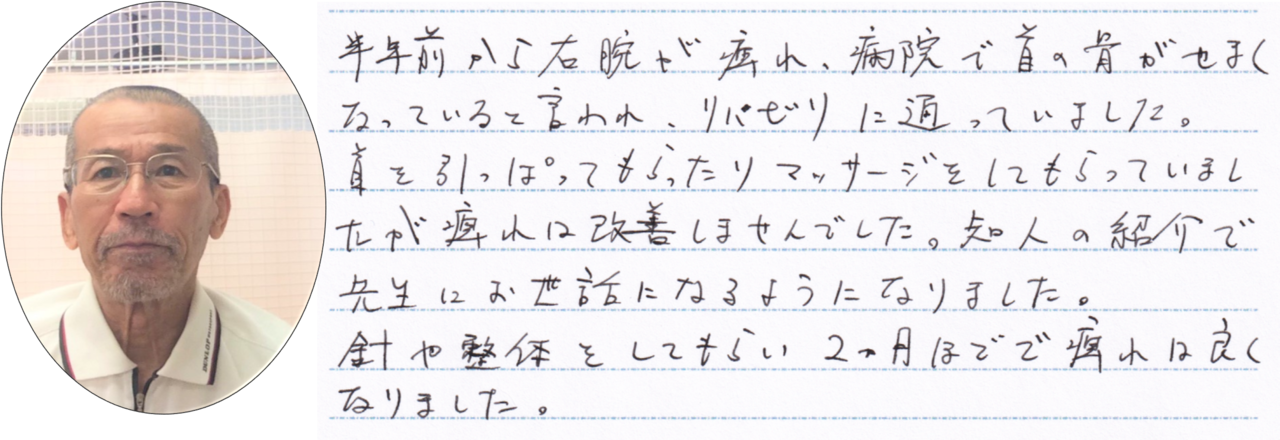 半年前から右腕が痺れ、病院で首の骨がせまく
なっていると言われ、リハビリに通っていました。
首を引っぱってもらったりマッサージをしてもらっていまし
たが痺れは改善しませんでした。知人の紹介で
先生にお世話になるようになりました。
針や整体をしてもらい2ヶ月ほどで痺れは良く
なりました。
DUNLOP